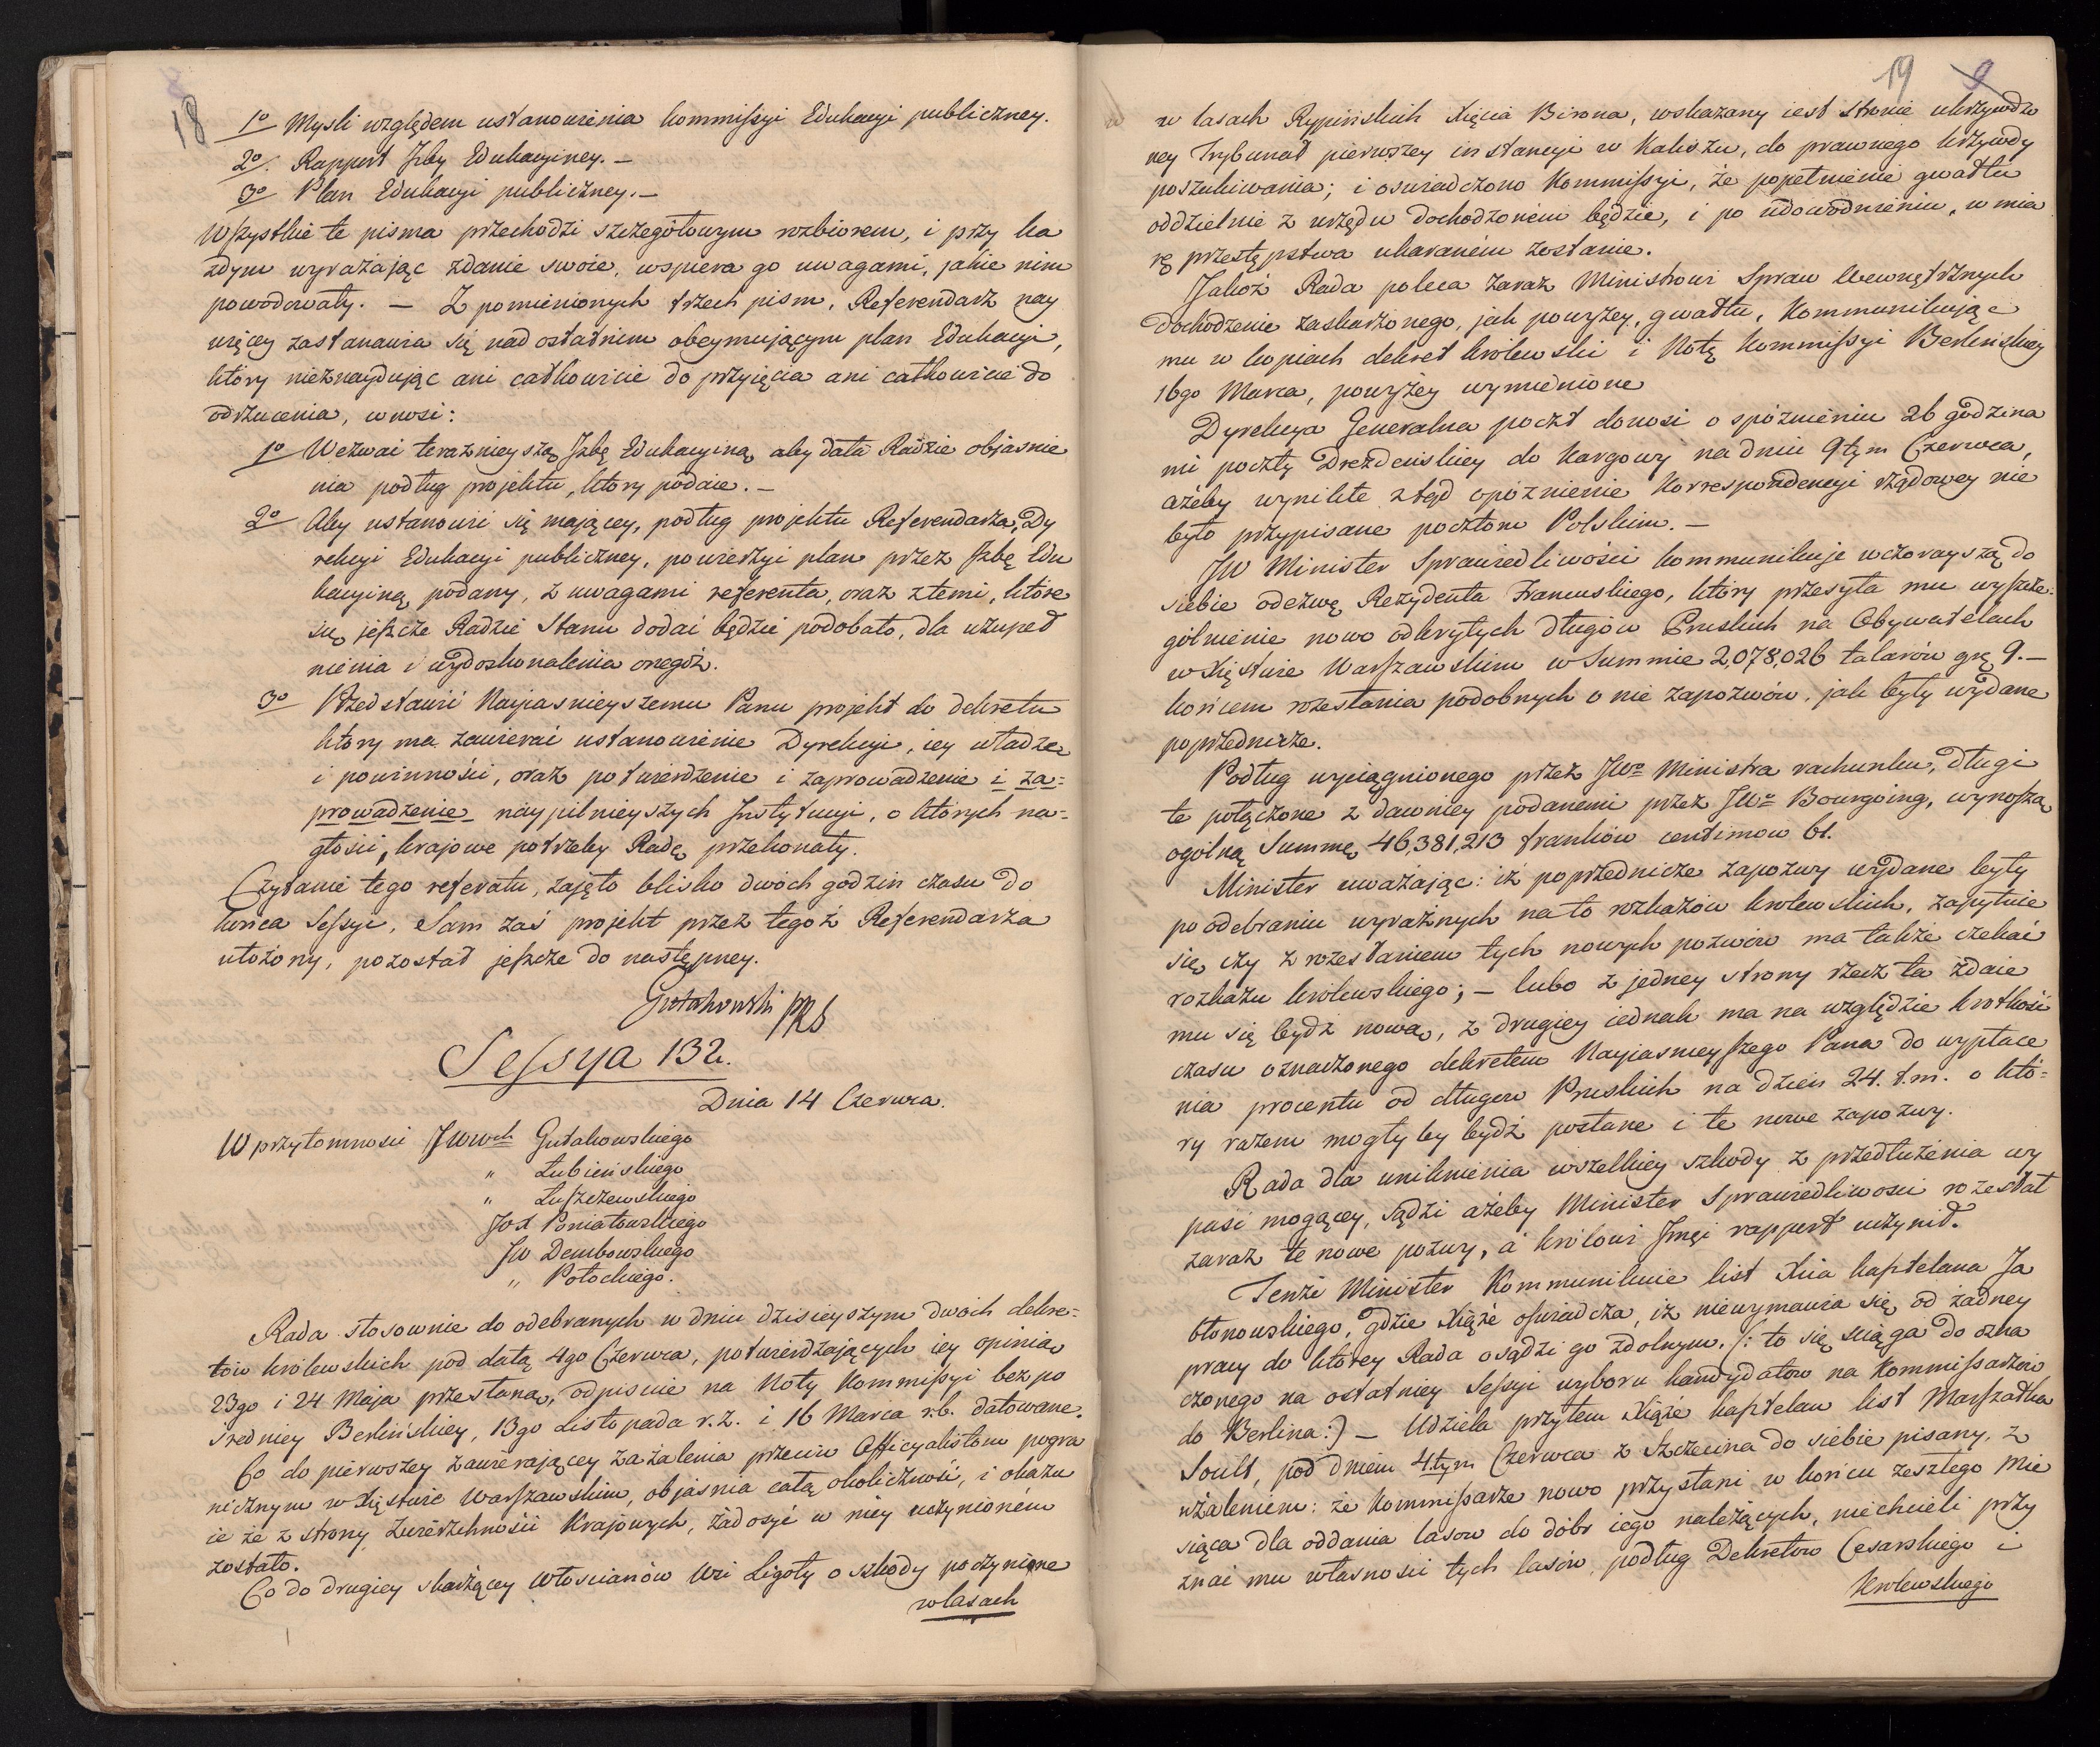 18
1o Mysli względem ustanowienia kommissyi Edukacyi publiczney.
2o. Rapport Izby Edukacyiney. —
3o Plan Edukacyi publiczney. —
Wszystkie te pisma przechodzi szczegółowym rozbiorem, i przy ka
żdym wyrażaiąc zdanie swoie, wspiera go uwagami, jakie nim
powodowały. — Z pomienionych trzech pism, Referendarz nay
więcey zastanawia się nad ostatnim obeymującym plan Edukacyi,
który nieznaydując ani całkowicie do przyięcia ani całkowicie do
odrzucenia, wnosi:
1o Wezwać teraznieyszą Izbę Edukacyiną, aby dała Radzie objaśnie
nia podług projektu, który podaie. —
2o Aby ustanowić się mającey, podług projektu Referendarza, Dy
rekcyi Edukacyi publiczney, powierzyć plan przez Izbę Edu
kacyiną podany, z uwagami referenta, oraz z temi, które
się jeszcze Radzie Stanu dodać będzie podobało, dla uzupeł
nienia i wydoskonalenia onegóż.
3o Przedstawić Nayiasnieyszemu Panu projekt do dekretu
który ma zawierać ustanowienie Dyrekcyi, iey władze
i powinności, oraz potwierdzenie i zaprowadzenie i za=
prowadzenie naypilnieyszych Instytucyi, o których na=
głości, krajowe potrzeby Radę przekonały.
Czytanie tego referatu, zajęło blisko dwóch godzin czasu do
końca Sessyi, Sam zaś projekt przez tegoż Referendarza
ułożony, pozostał jeszcze do następney.
Gutakowski PRS
Sessya 132.
Dnia 14 Czerwca.
W przytomności JWWch Gutakowskiego
" Łubieńskiego
" Łuszczewskiego
JOX Poniatowskiego
JW Dembowskiego
" Potockiego.
Rada stosownie do odebranych w dniu dzisieyszym dwóch dekre=
tów królewskich pod datą 4go Czerwca, potwierdzających iey opinią
23go i 24 Maja przesłaną, odpisuie na Noty Kommissyi bezpo
średniey Berlińskiey, 13go Listopada r.z. i 16 Marca r.b. datowane.
Co do pierwszey zawierającey zażalenia przeciw Officyalistom pogra
nicznym w Xięstwie Warszawskim, objasnia całą okoliczność, i okazu
ie że z strony Zwierzchności Krajowych, zadosyć w niey uczynioném
zostało.
Co do drugiey skarżącey Włoscianów Wsi Ligoty o szkody poczynione
w lasach
19 9
w lasach Rypińskich Xięcia Birona, wskazany iest stronie ukrzywdzo
ney Trybunał pierwszey instancyi w Kaliszu, do prawnego krzywdy
poszukiwania; i oswiadczono Kommissyi, że popełnienie gwałtu
oddzielnie z urzędu dochodzoném będzie, i po udowodnieniu, w mia
rę przestępstwa ukaraném zostanie.
Jakoż Rada poleca zaraz Ministrowi Spraw Wewnętrznych
dochodzenie zaskarżonego, jak powyżey, gwałtu, kommunikując
mu w kopiach dekret królewski i Notę Kommissyi Berlińskiey
16go Marca, powyżey wymienione
Dyrekcya Generalna poczt donosi o spóźnieniu 26 godzina
mi poczty Drezdeńskiey do Kargowy na dniu 9tym Czerwca,
ażeby wynikłe ztąd opóźnienie Korrespondencyi rządowey nie
było przypisane pocztom Polskim. —
JW Minister Sprawiedliwości kommunikuje wczorayszą do
siebie odezwę Rezydenta Francuskiego, który przesyła mu wyszcze=
gólnienie nowo odkrytych długów Pruskich na Obywatelach
w Xięstwie Warszawskim w Summie 2,078,026 talarów grę 9. —
końcem rozesłania podobnych o nie zapozwów, jak były wydane
poprzednicze.
Podług wyciągnionego przez JWo Ministra rachunku, długi
te połączone z dawniey podanemi przez JWo Bourgoing, wynoszą
ogólną Summę 46,381,213 franków centimow 61.
Minister uważając: iż poprzednicze zapozwy wydane były
po odebraniu wyraźnych na to rozkazów królewskich, zapytuie
się, czy z rozesłaniem tych nowych pozwów ma także czekać
rozkazu królewskiego; — lubo z jedney strony rzecz ta zdaie
mu się bydź nową, z drugiey iednak ma na względzie krótkość
czasu oznaczonego dekretem Nayiasnieyszego Pana do wypłace
nia procentu od długów Pruskich na dzień 24. t.m. o któ=
ry razem mogłyby bydź posłane i te nowe zapozwy.
Rada dla uniknienia wszelkiey szkody z przedłużenia wy
paść mogącey, sądzi ażeby Minister Sprawiedliwości rozesłał
zaraz te nowe pozwy, a królowi Jmci rapport uczynił.
Tenże Minister Kommunikuie list Xcia kasztelana Ja
błonowskiego, gdzie Xiąże oświadcza, iż niewymawia się od żadney
pracy do którey Rada osądzi go zdolnym. /: to się sciąga do ozna
czonego na ostatniey Sessyi wyboru kandydatów na Kommissarzów
do Berlina:) — Udziela przytem Xiąże kasztelan list Marszałka
Soult, pod dniem 4.tym Czerwca z Szczecina do siebie pisany, z
użaleniem: że Kommissarze nowo przysłani w końcu zeszłego Mie
siąca dla oddania lasow do dóbr iego należących, niechcieli przy
znać mu własności tych lasów, podług Dekretów Cesarskiego i
Krolewskiego